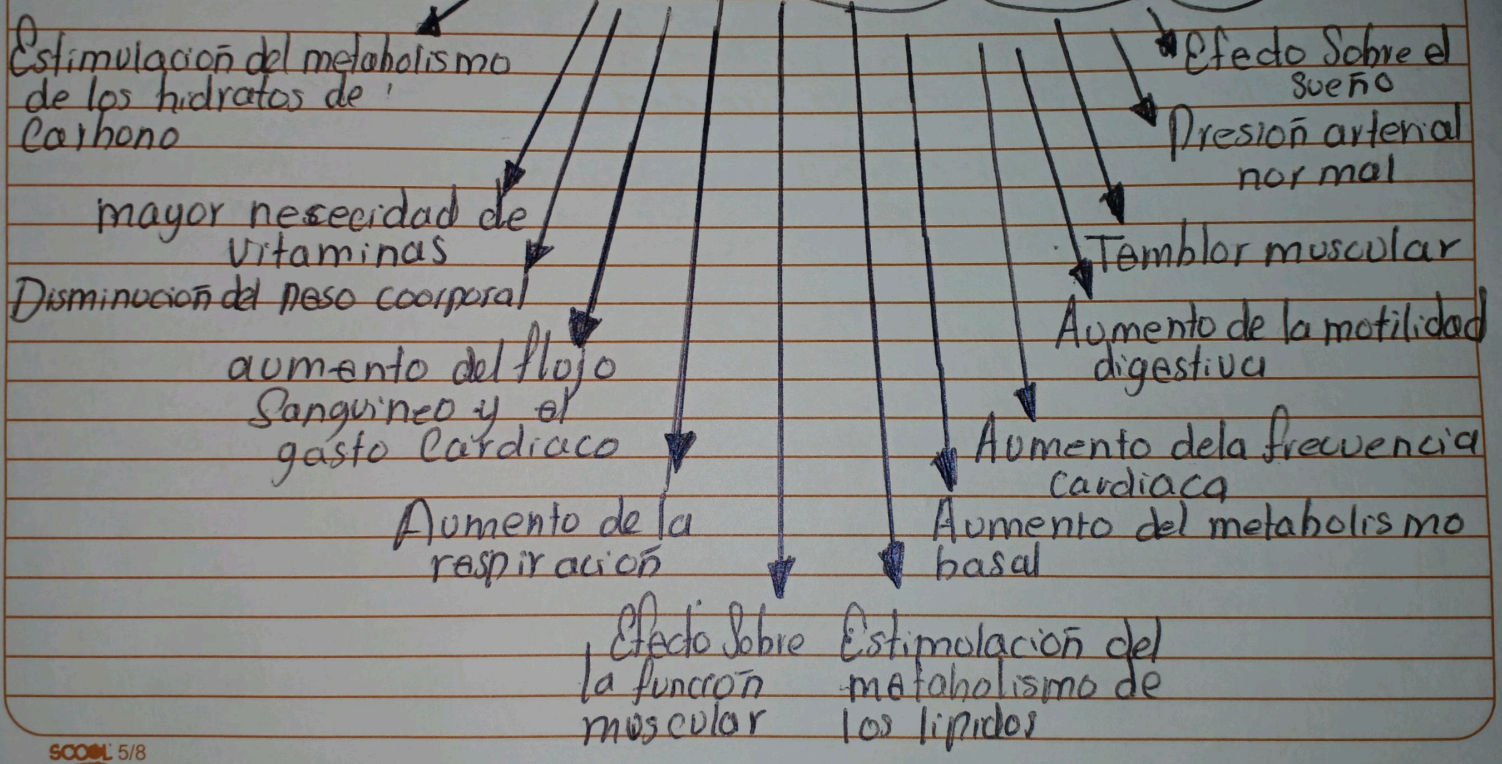 Estimulación del metabolismo
de los hidratos de
Carbono
mayor nesecidad de
vitaminas
Disminución del peso coorporal
aumento del flujo
Sanguineo y el
gasto Cardiaco
Aumento de la
respiración
Efecto Sobre
la función
muscular
Estimulación del
metabolismo de
los lipidos
Aumento del metabolismo
basal
Aumento dela frecuencia
cardiaca
Aumento de la motilidad
digestiva
Temblor muscular
Presión arterial
normal
Efecto Sobre el
sueño
SCOOL 5/8